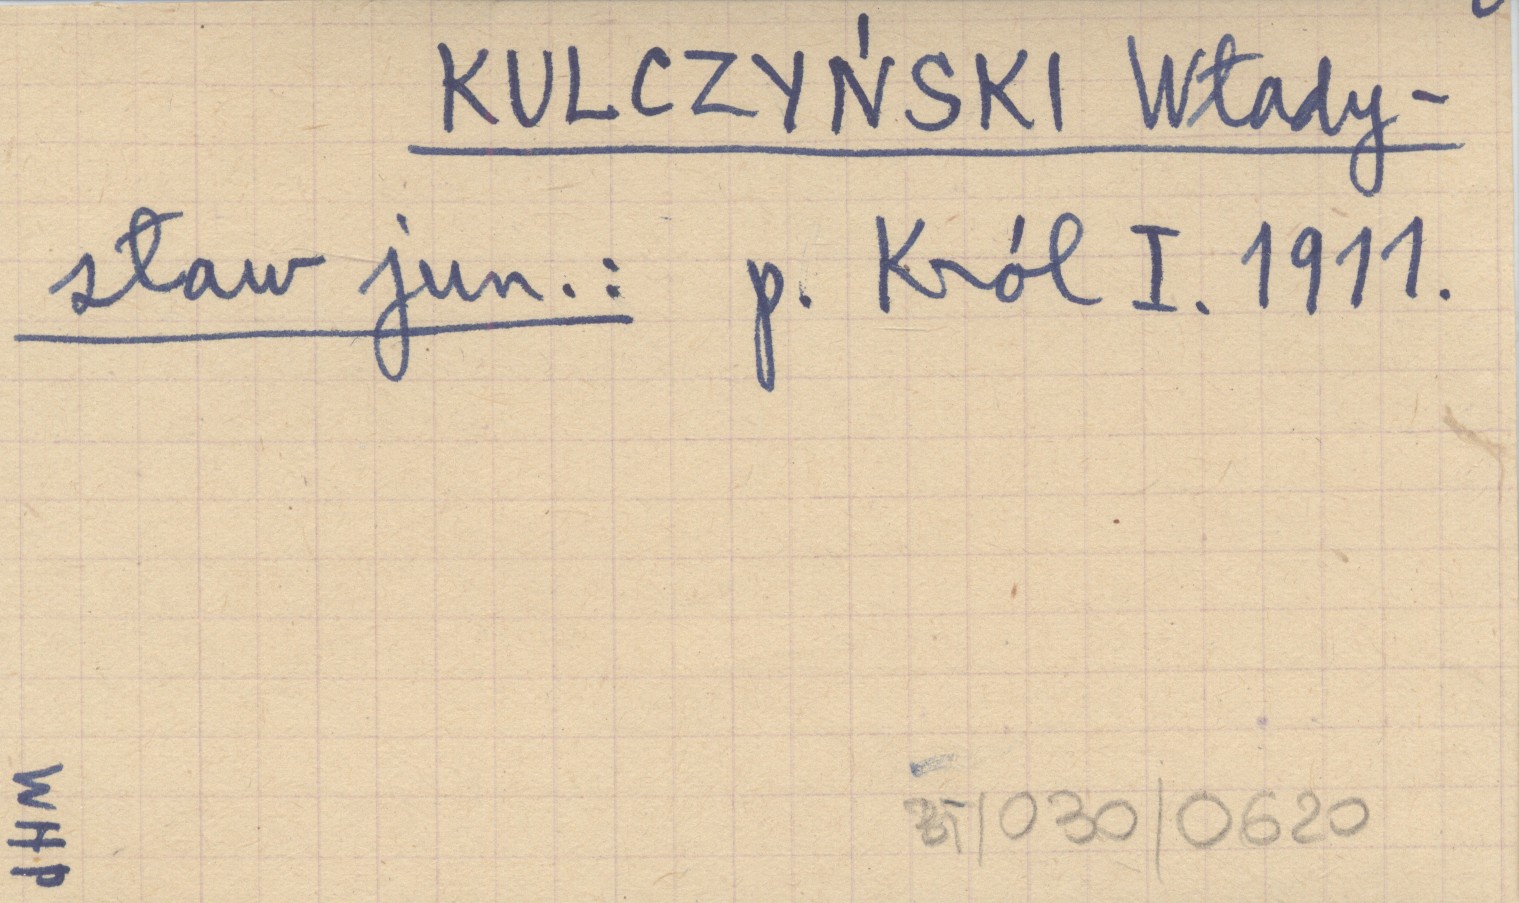 KULCZYŃSKI Włady-
sław jun.: p. Król I. 1911.
WHP
/030/0620